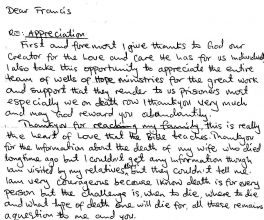 Dear Francis
Re: Appreciation
First and fore most I give thanks to God our
Creator for the Love and Care He has for us individual
I also take this opportunity to appreciate the entire
team of wells of Hope ministries for the great work
and support that they render to us prisoners most
especially we on death row I thank you very much
and may God reward you abundantly.
Thank you for reaching my family, this is really
the heart of Love that the Bible teaches. Thank you
for the information about the death of my wife who died
long time ago but I couldn't get any information though
am visited by my relatives, but they couldn't tell me.
Iam very courageous because I know death is for every
person but the challenge is, when to die, where to die
and what type of death one will die for, all these remains
a question to me and you.